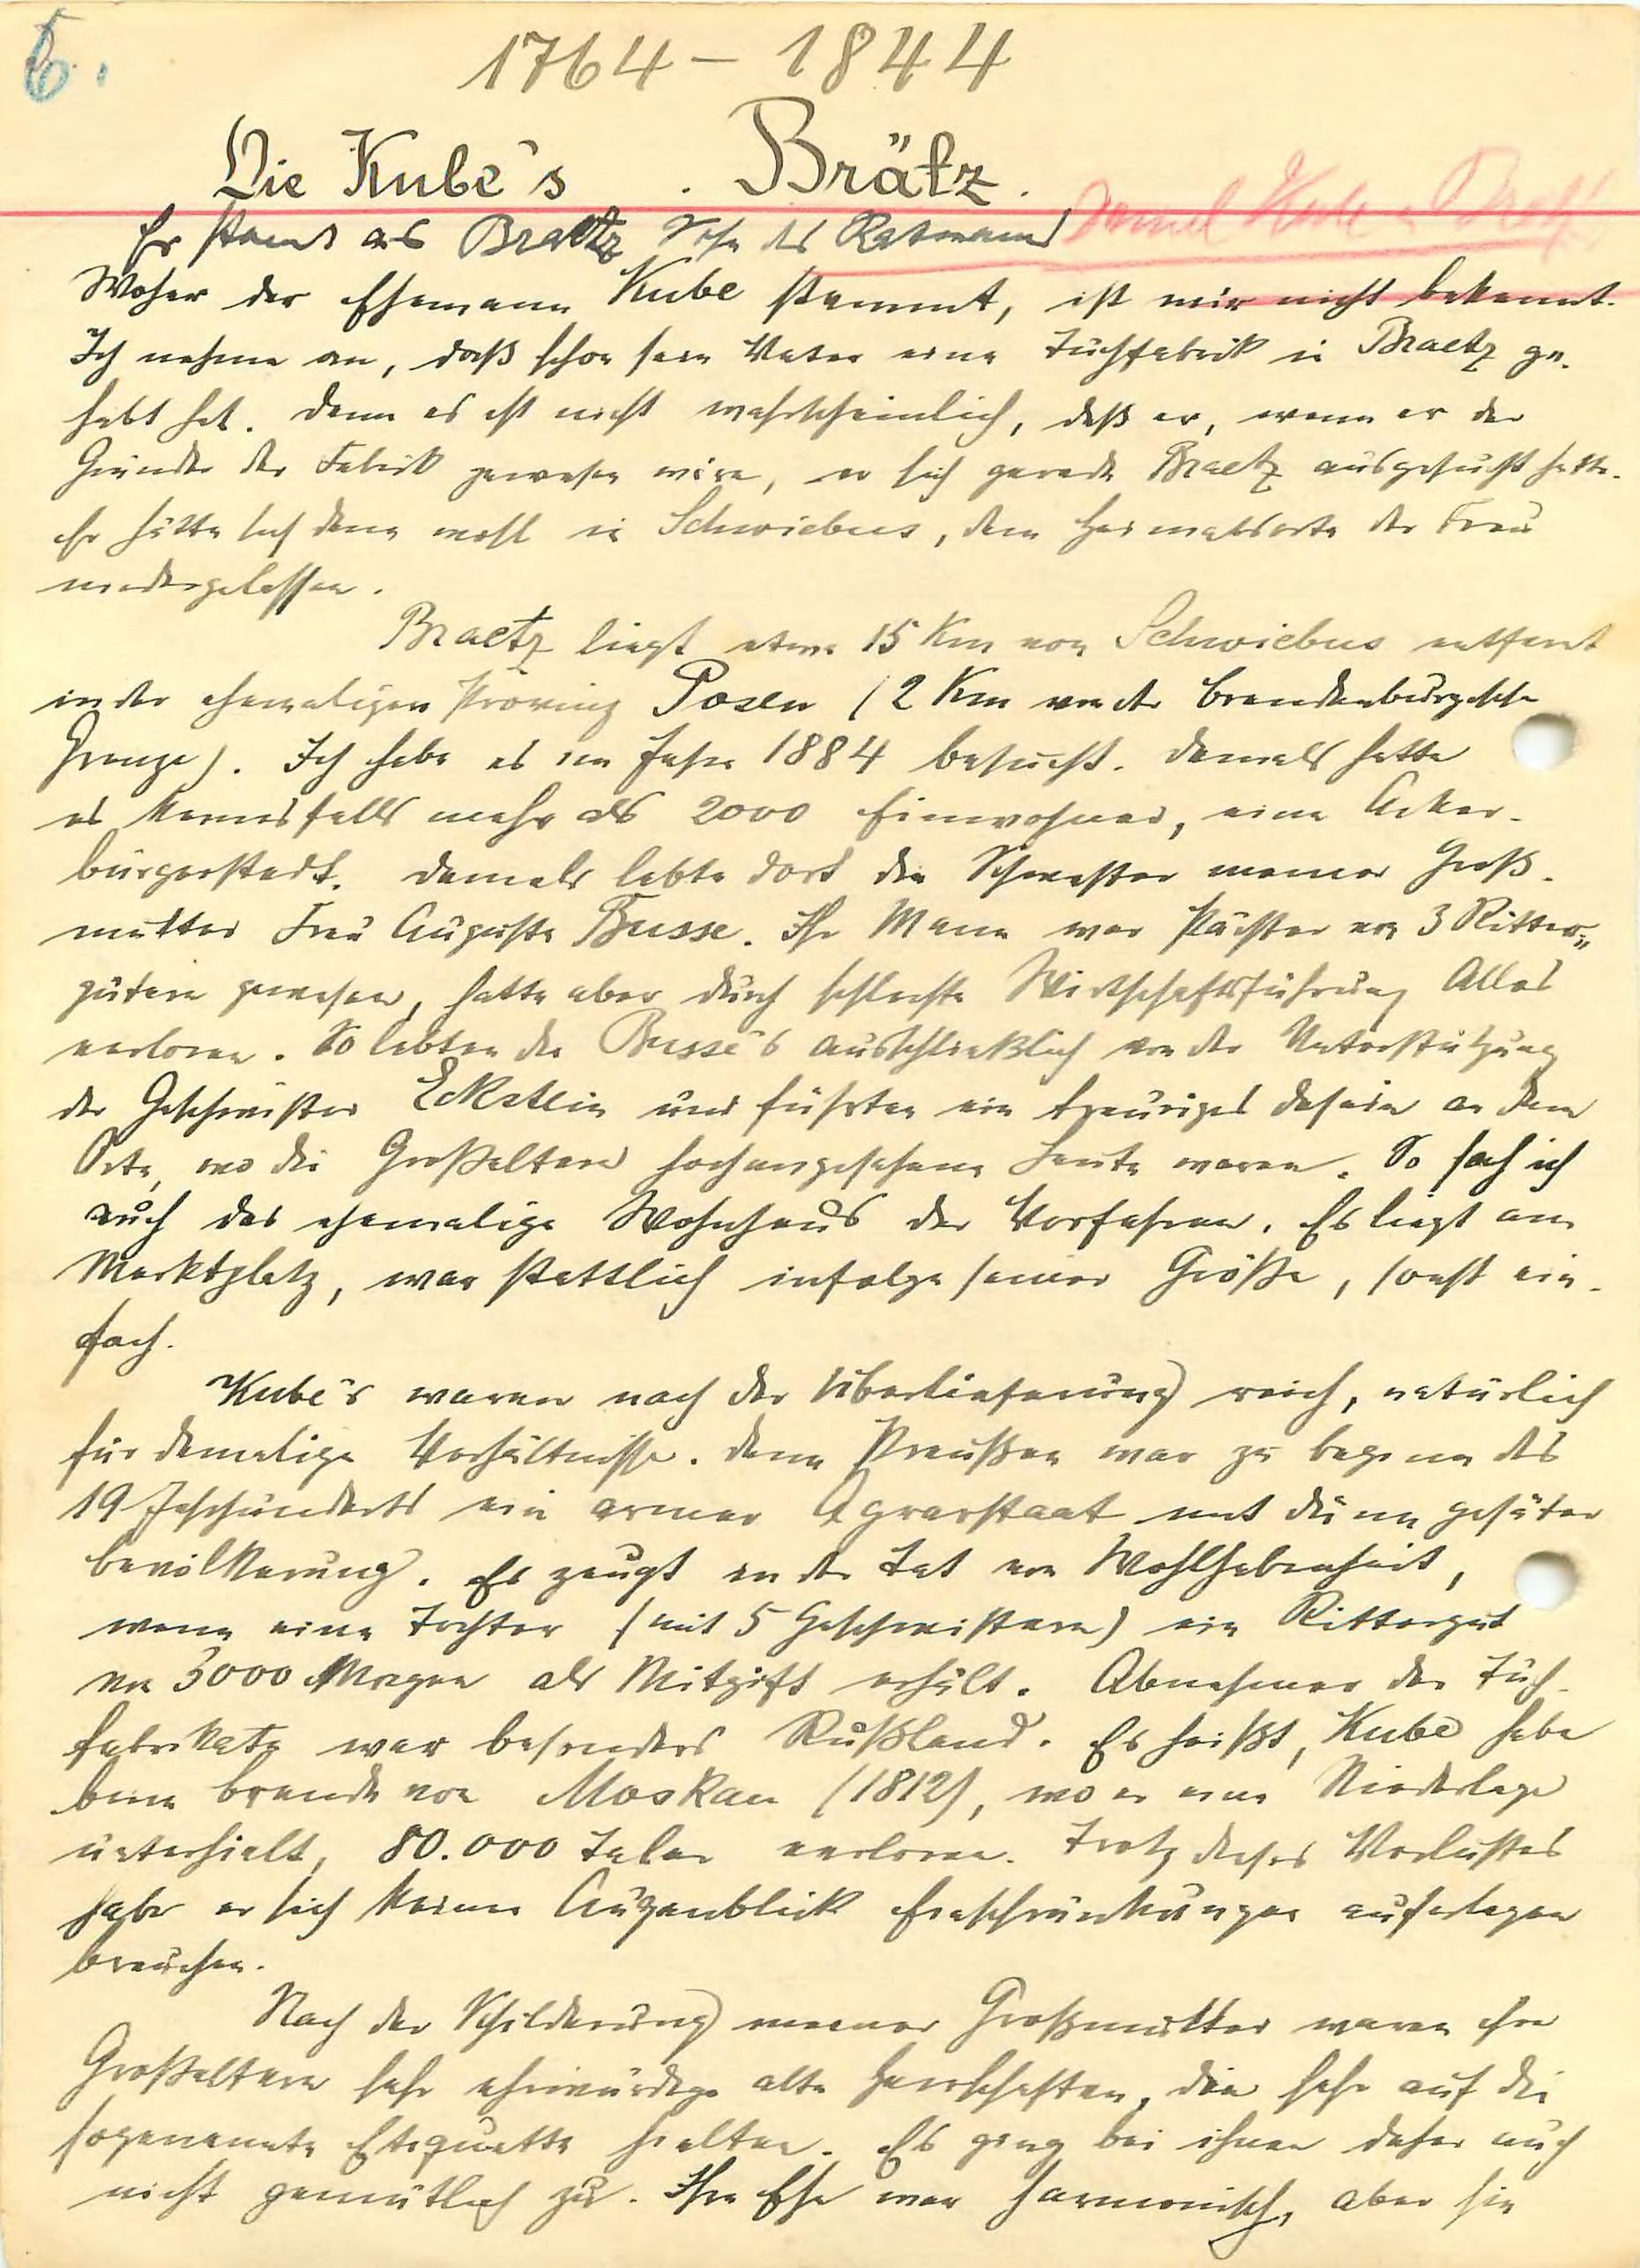 6.
1764 – 1844
Die Kube's . Brätz.
Er stammt aus Braetz Sohn des Ratmanns
Daniel Kube
Woher der Ehemann Kube stammt, ist mir nicht bekannt.
Ich nehme an, daß schon sein Vater eine Tuchfabrik in Braetz ge-
habt hat. Denn es ist nicht wahrscheinlich, daß er, wenn er der
Gründer der Fabrik gewesen wäre, er sich gerade Braetz ausgesucht hätte.
Er hätte sich dann wohl in Schwiebus, dem Heimatsorte der Frau
niedergelassen.
Braetz liegt etwa 15 Km von Schwiebus entfernt
in der ehemaligen Provinz Posen (2 Km von der brandenburgischen
Grenze). Ich habe es im Jahre 1884 besucht. Damals hatte
es keinesfalls mehr als 2000 Einwohner, eine Acker-
bürgerstadt. Damals lebte dort die Schwester meiner Groß-
mutter Frau Auguste Busse. Ihr Mann war Pächter von 3 Ritter-
gütern gewesen, hatte aber durch schlechte Wirtschaftsführung Alles
verloren. So lebten die Busse's ausschließlich von der Unterstützung
der Geschwister Eckstein und führten ein trauriges Dasein an dem
Orte, wo die Großeltern hochangesehene Leute waren. So sah ich
auch das ehemalige Wohnhaus der Vorfahren. Es liegt am
Marktplatz, war stattlich infolge seiner Größe, sonst ein-
fach.
Kube's waren nach der Überlieferung reich, natürlich
für damalige Verhältnisse. Denn Preußen war zu Beginn des
19 Jahrhunderts ein armer Agrarstaat mit dünn gesäter
Bevölkerung. Es zeugt in der Tat von Wohlhabenheit,
wenn eine Tochter (mit 5 Geschwistern) ein Rittergut
von 3000 Morgen als Mitgift erhält. Abnehmer der Tuch-
fabrikate war besonders Rußland. Es heißt, Kube habe
beim Brande von Moskau (1812), wo er eine Niederlage
unterhielt, 80.000 Taler verloren. Trotz dieses Verlustes
habe er sich keinen Augenblick Einschränkungen auferlegen
brauchen.
Nach der Schilderung meiner Großmutter waren ihre
Großeltern sehr ehrwürdige alte Herrschaften, die sehr auf die
sogenannte Etiquette hielten. Es ging bei ihnen daher auch
nicht gemütlich zu. Ihre Ehe war harmonisch, aber sie